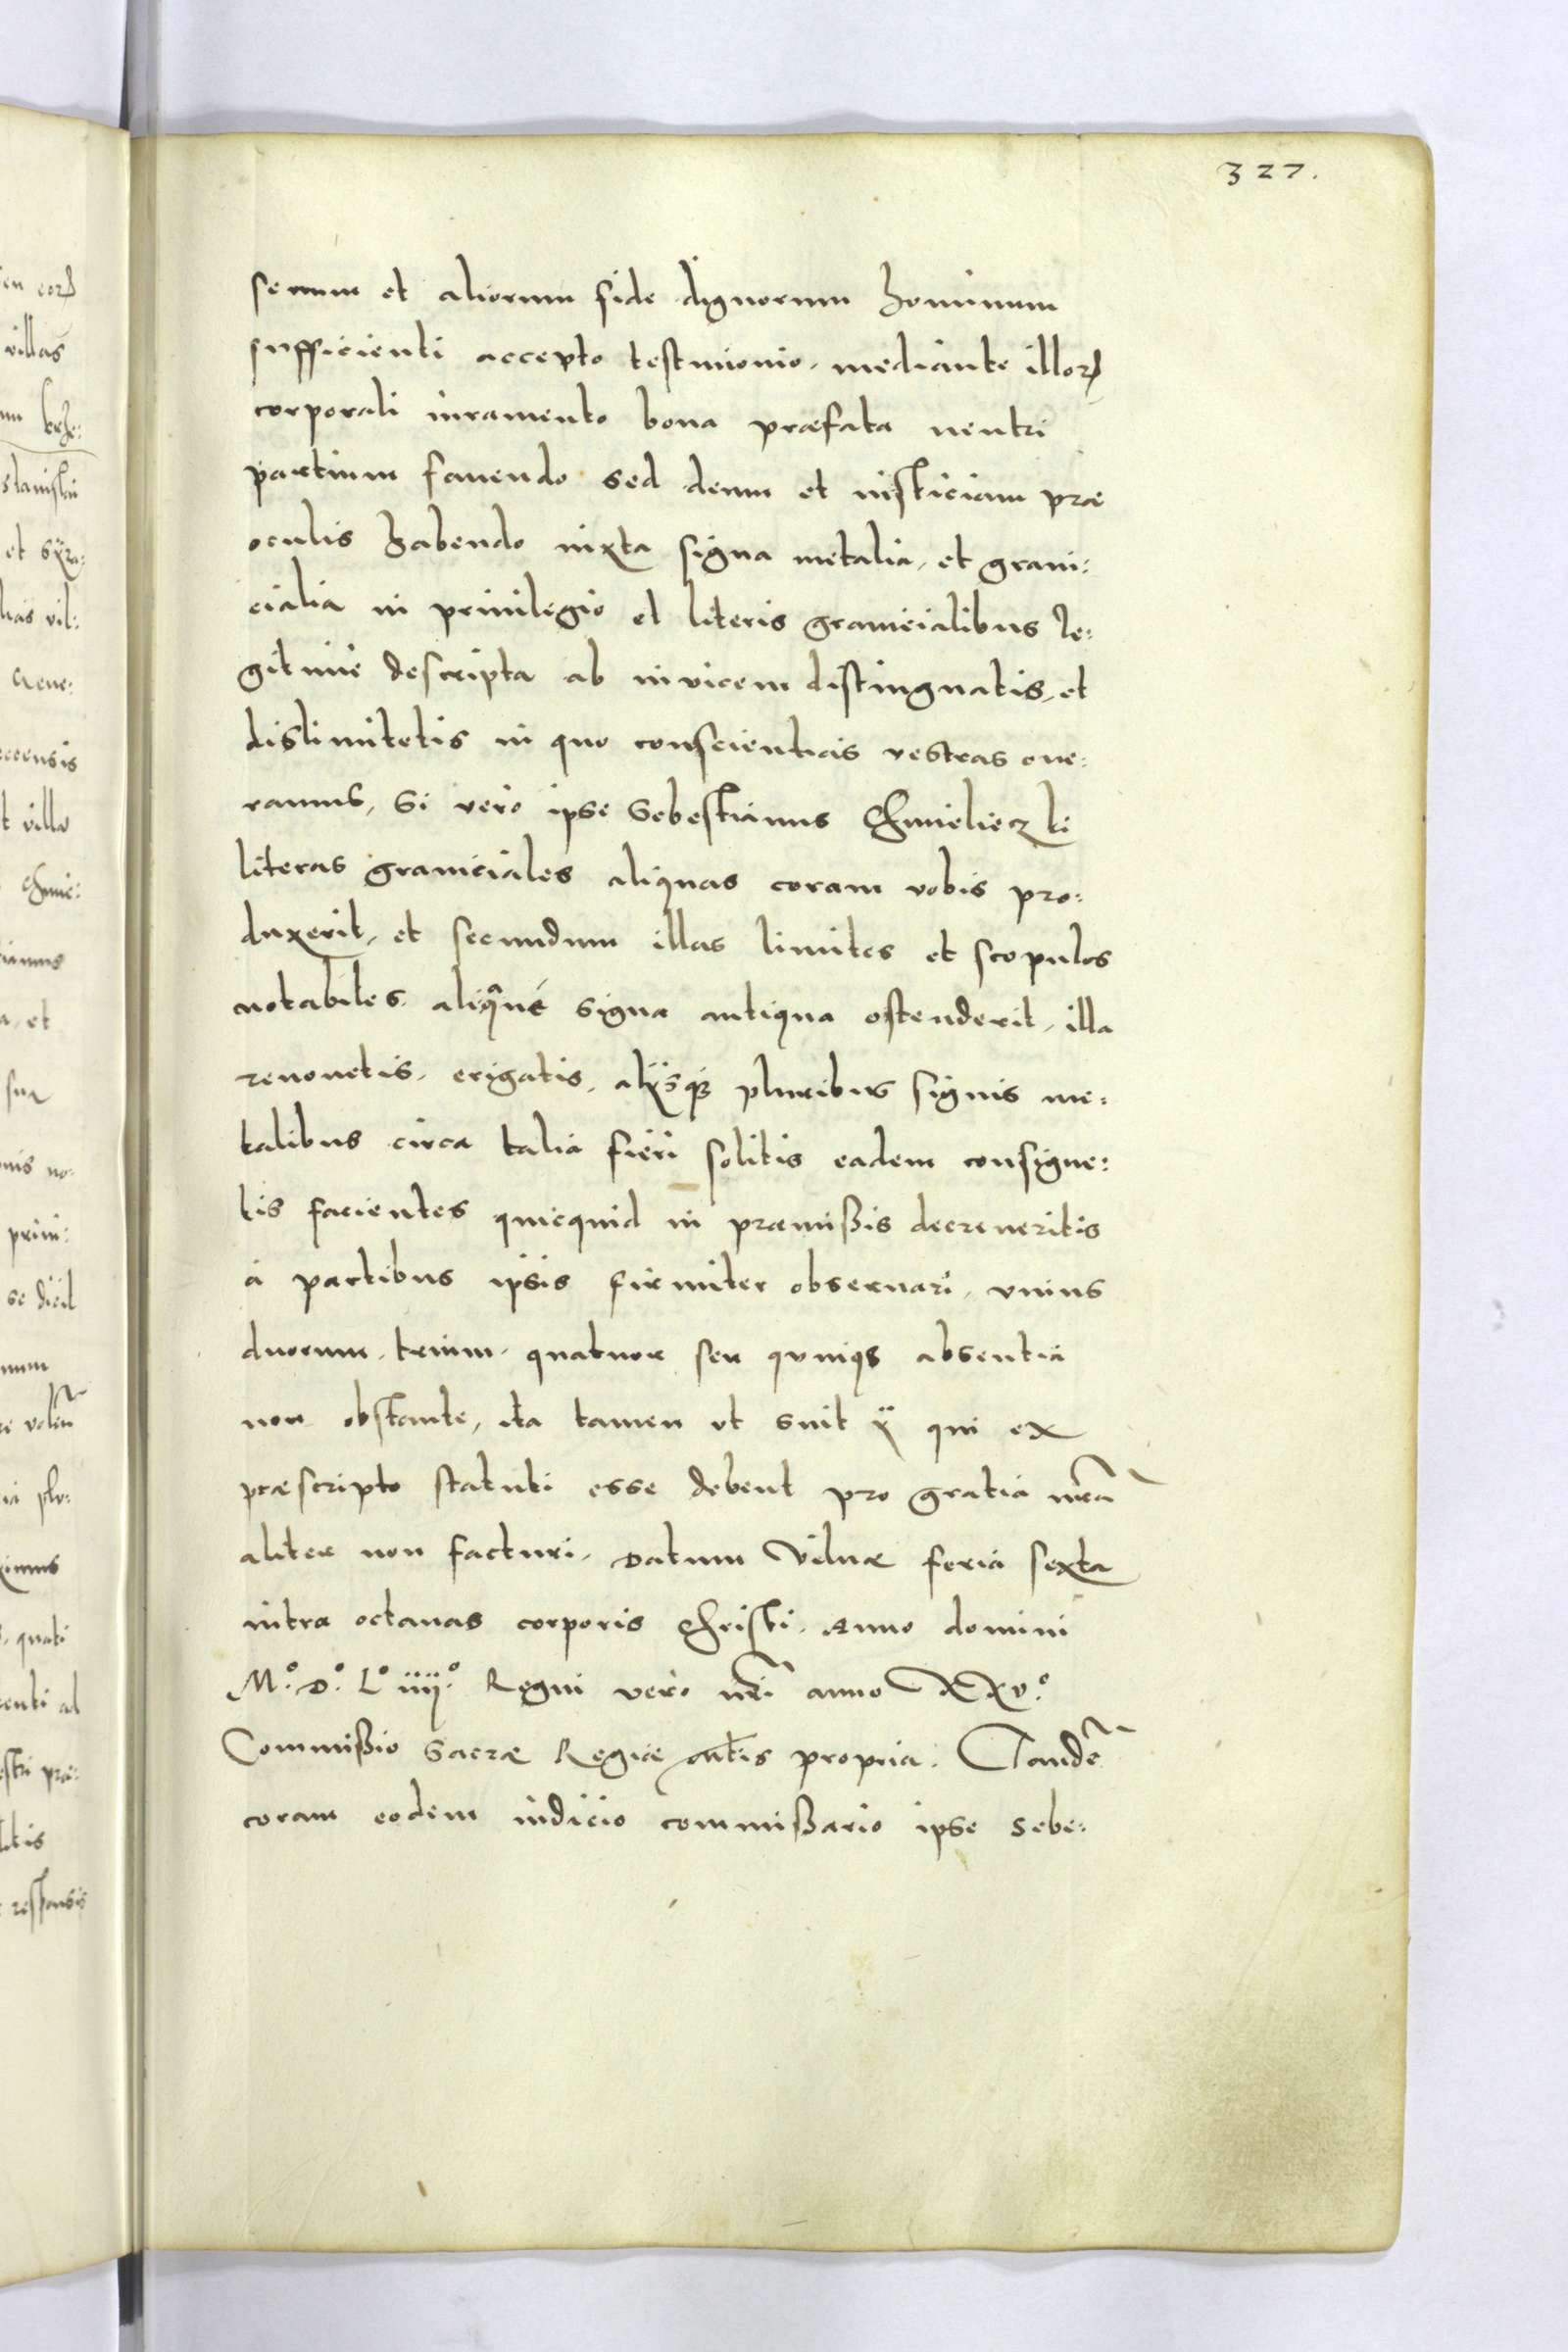 327.
senum et aliorum fide dignorum hominum
sufficienti accepto testimonio, mediante illorꝝ
corporali iuramento bona præfata neutri
partium fauendo sed deum et iusticiam præ
oculis habendo iuxta signa metalia, et grani:
cialia in priuilegio et literis granicialibus le:
gitime descripta ab inuicem distinguatis, et
dislimitetis in quo conscientias vestras one:
ramus, Si vero ipse Sebestianus Chmielieczki
literas graniciales aliquas coram vobis pro:
duxerit, et secundum illas limites et scopulos
notabiles, aliqůae signa antiqua ostenderit, illa
renouetis, erigatis, alÿsqꝫ pluribus signis me:
talibus circa talia fieri solitis eadem consigne:
tis facientes quicquid in præmißis decreueritis
a partibus ipsis firmiter obseruari, vnius
duorum, trium, quatuor seu quniqꝫ absentia
non obstante, ita tamen ut suit ÿ qui ex
præscripto statuti esse debent pro gratia nrã
aliter non facturi. Datum Vilnæ feria sexta
intra octauas corporis Christi, Anno domini
M.° D.° L.° iiij.° Regni vero nrĩ anno XXv.°
Commißio Sacræ Regiæ Mtis propria. Tandẽ
coram eodem iudicio commißario ipse Sebe: